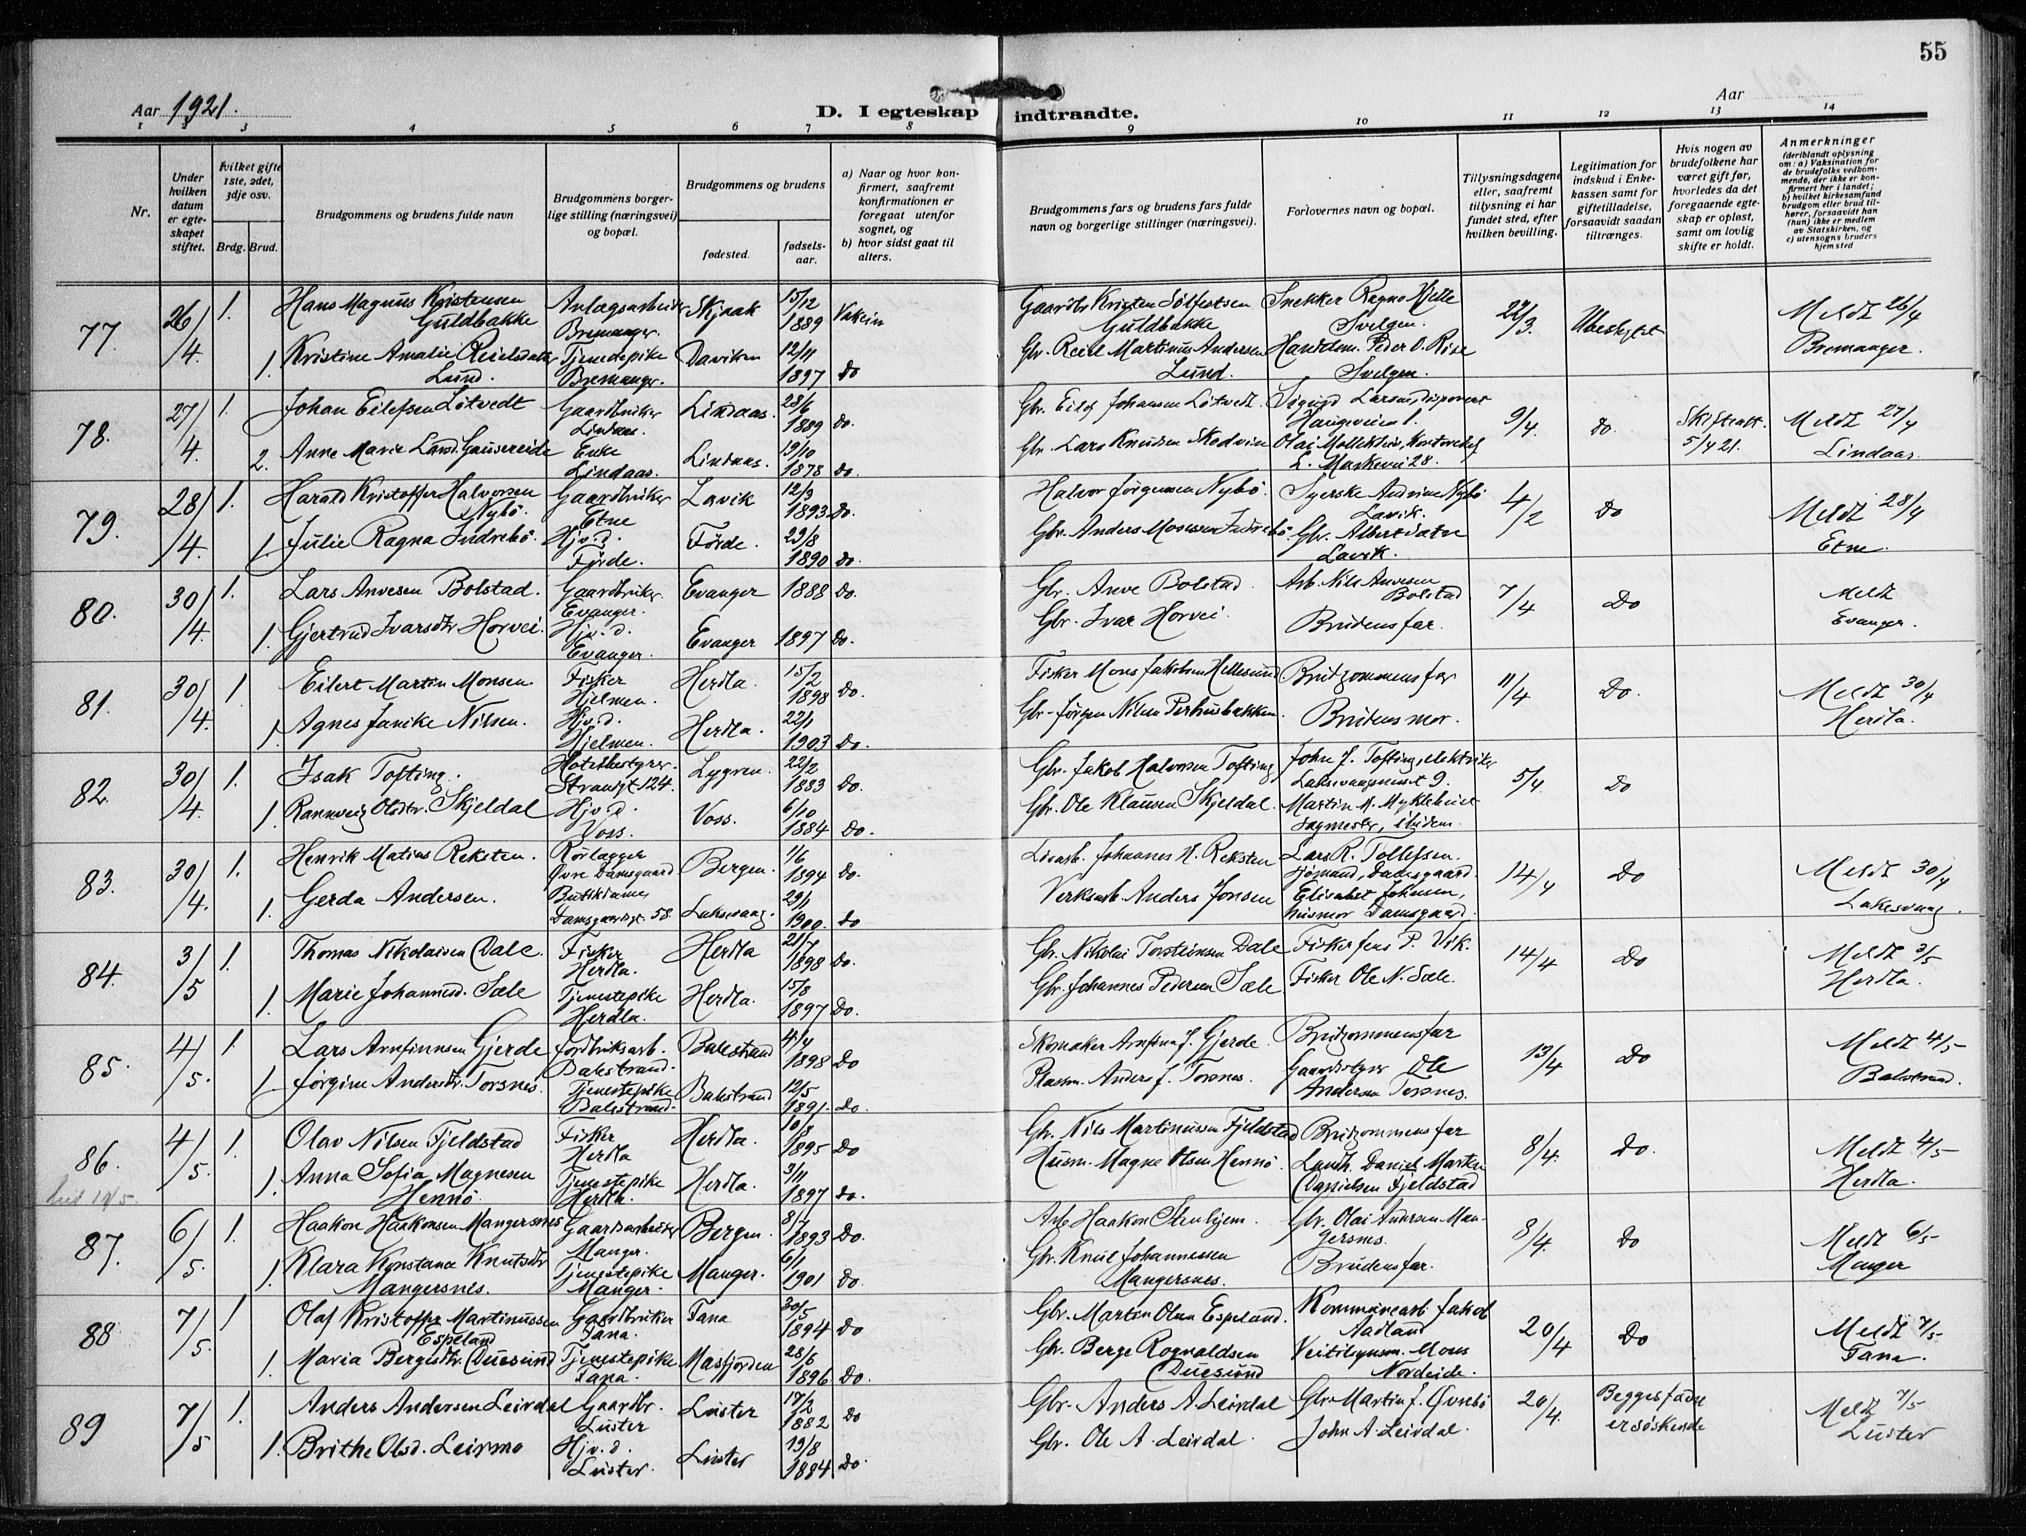 55
Aar 1921.
D. I egteskap indtraadte.
Aar
1 2 3 4 5 6 7 8 9 10 11 12 13 14
Nr.
Under hvilken datum er egteskapet stiftet.
Hvilket gifte 1ste, 2det, 3dje osv.
Brdg. Brud.
Brudgommens og brudens fulde navn
Brudgommens borgerlige stilling (næringsvei) og bopæl.
Brudgommens og brudens
fødested.
fødselsaar.
a) Naar og hvor konfirmert, saafremt konfirmationen er foregaat utenfor sognet, og
b) hvor sidst gaat til alters.
Brudgommens fars og brudens fars fulde navn og borgerlige stillinger (næringsvei).
Forlovernes navn og bopæl.
Tillysningsdagene eller, saafremt tillysning ei har fundet sted, efter hvilken bevilling.
Legitimation for indskud i Enkekassen samt for giftetilladelse, forsaavidt saadan tiltrænges.
Hvis nogen av brudefolkene har været gift før, hvorledes da det foregaaende egteskap er opløst, samt om lovlig skifte er holdt.
Anmerkninger
(deriblandt oplysning om: a) Vaksination for de brudefolks vedkommende, der ikke er konfirmert her i landet; b) hvilket kirkesamfund brudgom eller brud tilhører, forsaavidt han (hun) ikke er medlem av Statskirken, og c) utensogns bruders hjemsted
77. 26/4 1. Hans Magnus Kristensen Guldbakke Anlægsarbeider Bremanger. Skjaak 15/12 1889 Gaardbr Kristen Sølfestsen Guldbakke Snekker Ragna Svelgen. 22/3. Ubeskyttet Meldt 26/4 Bremanger.
1. Kristine Amalie Lund. Tjenestepike Bremanger. Daviken 12/11 1897 Do Gbr. Martinus Andersen Lund. Peder O. Rise Svelgen.
78. 27/4 1. Johan Eilefsen Løtvedt Gaardbruker Lindaas. Lindaas. 23/6 1889 Do. Gbr. Eilef Johansen Løtvedt. Sigurd Larsen, disponent Haugeveien 1. 9/4. Do. Skifteatt. 5/4 21. Meldt 27/4 Lindaas.
2. Anne Marie Larsd. Gausereide Enke Lindaas. Lindaas. 19/10 1878 Do. Gbr. Lars Knudsen Skodvin Olai
79. 28/4 1. Harald Kristoffer Halvorsen Nybö. Gaardbruker Etne Lavik 12/3 1893 Do. Halvor Jørgensen Nybö. Syerske Andrine Nybö Lavik. 4/2 Do Meldt 28/4 Etne.
1. Julie Ragna Indrebö. Hjv. d. Førde Førde. 23/8 1890 Do. Gbr. Anders Mosessen Indrebö. Gbr. Albert Lavik.
80. 30/4. 1. Lars Anvesen Bolstad. Gaardbruker Evanger. Evanger 1888 Do. Gbr. Anve Bolstad. Arb. Nils Anvesen Bolstad 7/4 Do Meldt Evanger.
1. Gjertrud Ivarsdtr Horvei. Hjv. d. Evanger. Evanger 1897 Do. Gbr. Ivar Horvei. Brudens far.
81. 30/4. 1 Eilert Martin Monsen. Fisker Hjelmen. Herdla. 15/2 1898 Do. Fisker Mons Jakobsen Hellesund Brudgommens far 11/4 Do. Meldt 30/4 Herdla.
1. Agnes Janike Nilsen. Hjv. d. Hjelmen. Herdla. 22/1 1903 Do. Gbr. Jørgen Nilsen Brudens mor.
82. 30/4 1. Isak Tofting. Hotelbestyrer. Strandgt 124. Lygren. 22/2 1883 Do. Gbr. Jakob Halvorsen Tofting John J. Tofting, elektriker Laksevaagneset 9. 5/4. Do
1. Rannveig Olsdtr. Skjeldal Hjv. d. Voss. Voss. 6/10 1884 Do. Gbr. Ole Klausen Skjeldal. Martin M. Myklebust Sagmester, ibidem.
83. 30/4. 1. Henrik Matias Reksten. Rörlægger Øvre Damsgaard Bergen. 1/6 1894 Do. Johannes N. Reksten Lars R. Tollefsen. Sjømand, Damsgaard. 14/4 Do Meldt 30/4 Laksevaag.
1. Gerda Andersen. Butikdame Damsgaardsgt. 58 Laksevaag. 29/1 1900. Do Verksarb. Anders Jonsen Elisabet Johnsen, husmor Damsgaard.
84. 3/5 1. Thomas Nikolaisen Dale. Fisker Herdla. Herdla 21/7 1898 Do. Gbr. Nikolai Torsteinsen Dale Fisker Jens P. Vik. 14/4 Do Meldt 3/5 Herdla.
1 Marie Johannesd. Sæle Tjenestepike Herdla. Herdla. 15/8 1897 Do. Gbr. Johannes Pedersen Sæle Fisker Ole N. Sæle.
85. 4/5. 1. Lars Arnfinnsen Gjerde Jordbruksarb. Balestrand. Balestrand 4/4 1898 Do Skomaker Arnfinn J. Gjerde. Brudgommens far 13/4 Do Meldt 4/5 Balestrand.
1 Jørgine Andersdtr. Torsnes. Tjenestepike Balestrand. Balestrand 12/5 1891. Do. Plassm. Anders J. Torsnes. Gaardstyrer Ole Andersen Torsnes.
86. 4/5. 1. Olav Nilsen Fjeldstad Fisker Herdla Herdla. 10/8 1895 Do Gbr. Nils Martinussen Fjeldstad Brudgommens far 8/4. Do. Meldt 4/5 Herdla.
1. Anna Sofia Magnesen Hennö Tjenestepike Herdla. Herdla. 3/11 1897 Do. Husm. Magne Olsen Hennö. Landh. Daniel Martin Danielsen Fjeldstad
87. 6/5. 1. Haakon Haakonsen Mangersnes Gaardsarbeider Manger. Bergen. 8/7 1893 Do. Arb Haakon Stenhjem. Gbr. Olai Andersen Mangersnes. 8/4. Do Meldt 6/5 Manger
1. Klara Konstanse Knutsdtr Mangersnes. Tjenestepike Manger. Manger. 6/1 1901 Do. Gbr. Knut Johannessen Mangersnes. Brudens far.
88 7/5. 1 Olaf Kristoffer Martinussen Espeland Gaardbruker Fana. Fana 30/5 1894 Do Gbr. Martin Olsen Espeland. Kommunearb Jakob Aadland 20/4 Do Meldt 7/5 Fana.
1. Maria Bergesdtr. Duesund Tjenestepike Fana. Masfjorden 28/6 1896 Do. Gbr. Berge Rognaldsen Duesund Mons Nordeide.
89 7/5 1. Anders Andersen Leirdal Gaardbr. Luster Luster 17/3 1882 Do Gbr. Anders A Leirdal Gbr. Martin J. Øvrebö 20/4. Begges fædre er søskende Meldt 7/5 Luster
1. Brithe Olsd. Leirmo Hjv. d. Luster. Luster 19/8 1884 Do. Gbr. Ole A. Leirdal. John A. Leirdal.